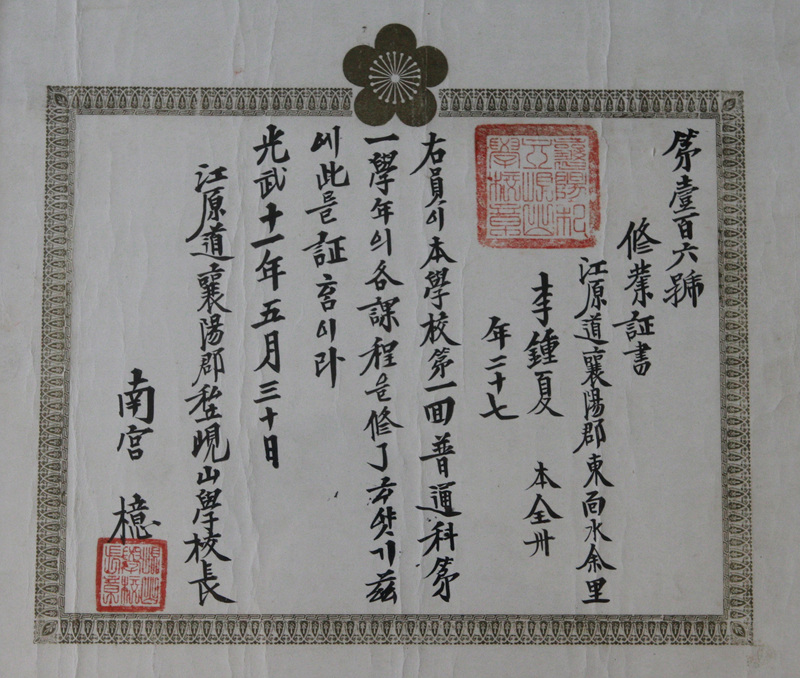 第壹百六號
修業証書
江原道襄陽郡東面水余里
李鍾夏 本全州
年二十七
右員이本學校第一回普通科第
一學年의各課程을修了ᄒᆞ얏기玆
에此를証홈이라
光武十一年五月三十日
江原道襄陽郡私立峴山學校長
南宮 檍
襄陽私立峴山學校章
峴山學校長章